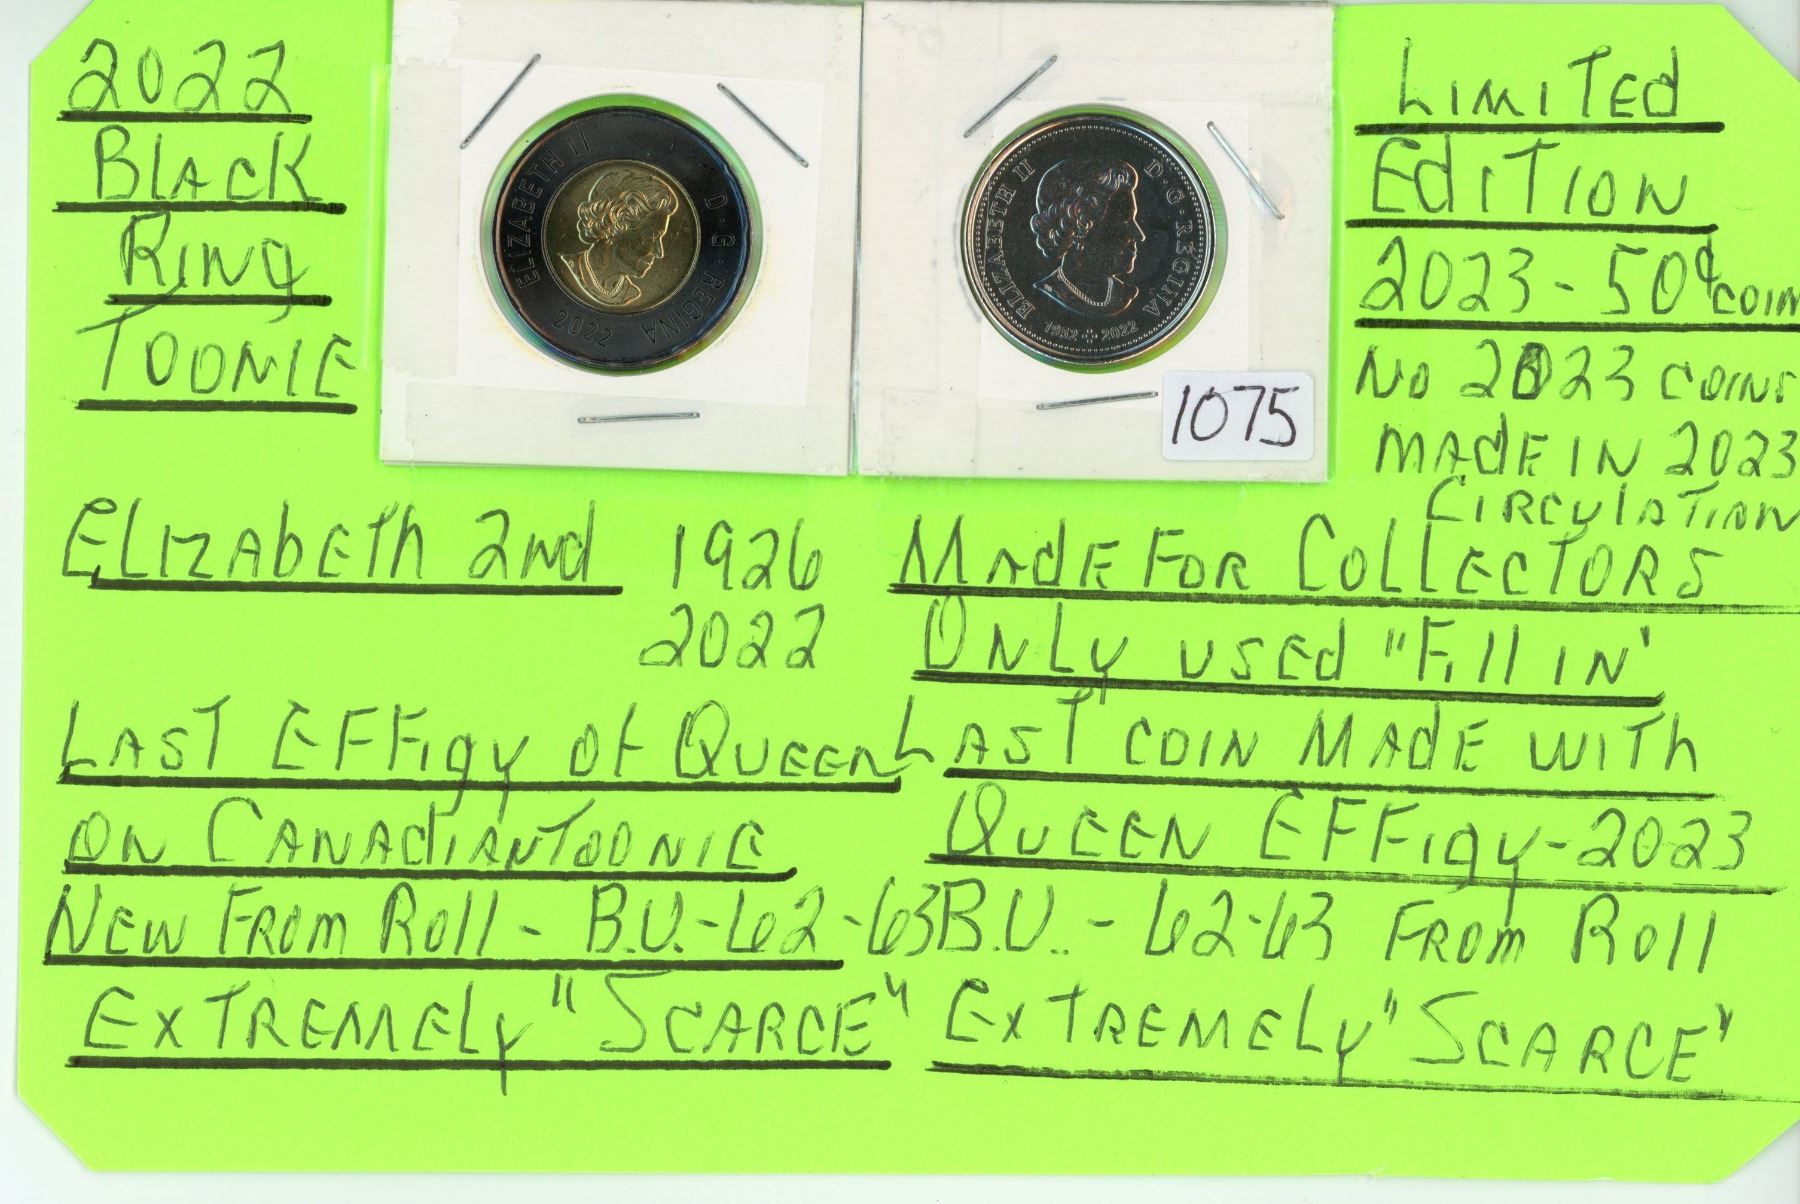 2022
Black
Ring
Toonie
ELIZABETH II D·G·REGINA
2022
ELIZABETH II D·G·REGINA
1952 2022
1075
Limited
Edition
2023-50¢ coin
No 2023 coins
made in 2023
Circulation
Elizabeth 2nd 1926
2022
Last Effigy of Queen
on Canadian Toonie
New From Roll - B.U.-62-63
Extremely "Scarce"
Made For Collectors
Only used "Fill in'
Last coin Made with
Queen Effigy-2023
B.U.. - 62-63 From Roll
Extremely "Scarce"